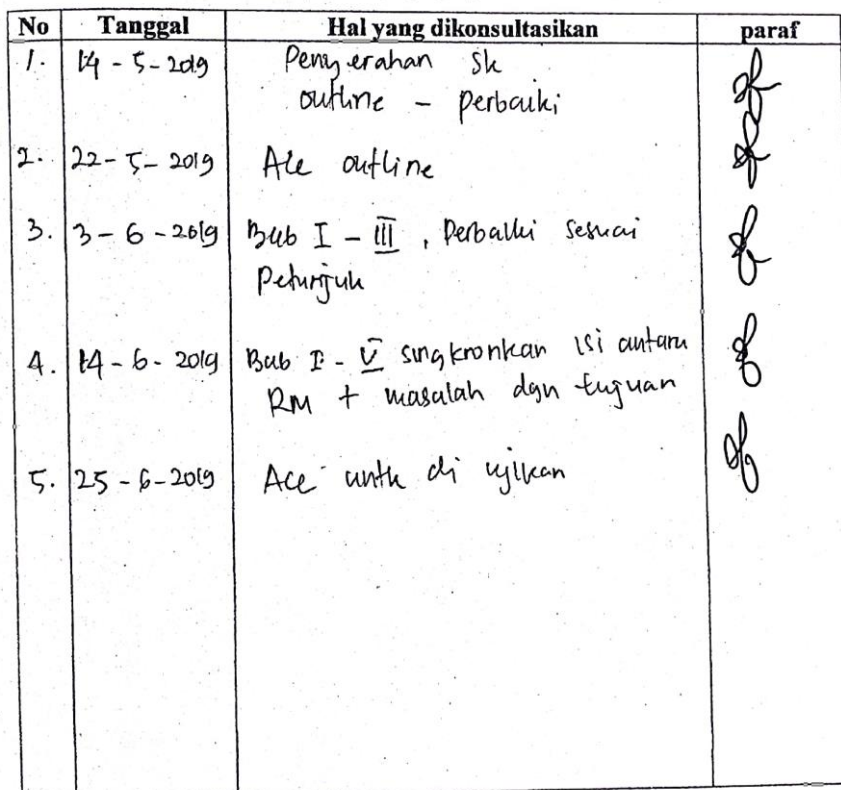 No Tanggal Hal yang dikonsultasikan paraf
1. 14 - 5 - 2019 Penyerahan Sk
outline - perbaiki
2. 22 - 5 - 2019 Acc outline
3. 3 - 6 - 2019 Bab I - III, Perbaiki sesuai
Petunjuk
4. 14 - 6 - 2019 Bab I - V singkronkan isi antara
RM + masalah dgn tujuan
5. 25 - 6 - 2019 Acc untk di ujikan